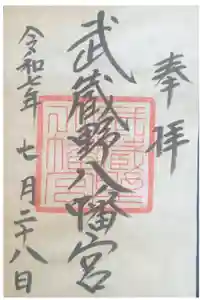 奉拝
武蔵野八幡宮
令和七年
七月二十八日